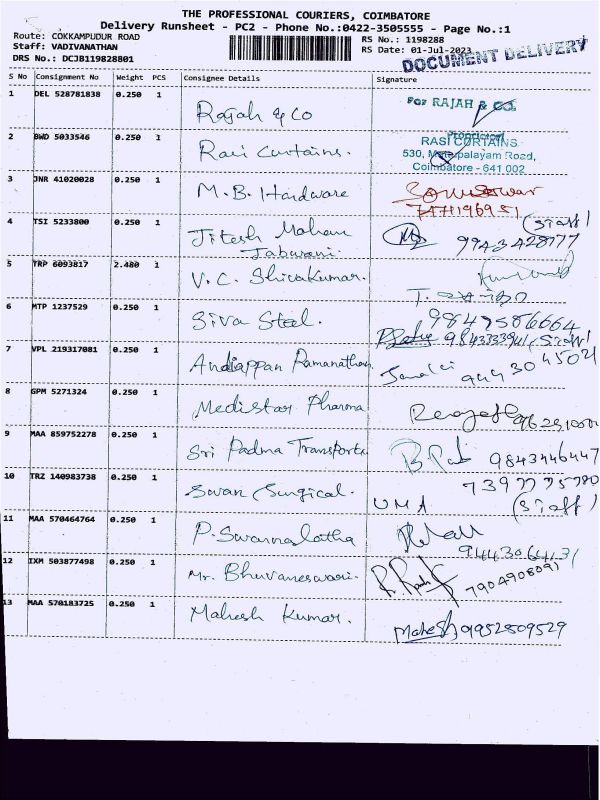 THE PROFESSIONAL COURIERS, COIMBATORE
Delivery Runsheet - PC2 - Phone No.:0422-3505555 - Page No.:1
Route: COKKAMPUDUR ROAD RS No.: 1198288
Staff: VADIVANATHAN RS Date: 01-Jul-2023
DRS No.: DCJB119828801 DOCUMENT DELIVERY
S No Consignment No Weight PCS Consignee Details Signature
1 DEL 528781838 0.250 1 Rajah & Co For RAJAH & CO.
Proprietor
2 BWD 5033546 0.250 1 Rasi Curtains. RASI CURTAINS
530, Metupalayam Road,
Coimbatore - 641 002
3 JNR 41020028 0.250 1 M.B. Hardware
4 TSI 5233800 0.250 1 Jitesh Mohan (Staff)
Jabwani. 9943428777
5 TRP 6093817 2.480 1 V.C. Shivakumar.
6 MTP 1237529 0.250 1 Siva Steel. 9847586664
(Staff)
7 VPL 219317081 0.250 1 Andiappan Ramanathan 9443045021
8 GPM 5271324 0.250 1 Medistar Pharma
9 MAA 859752278 0.250 1 Sri Padma Transports 9843446447
10 TRZ 140983738 0.250 1 Savan Surgical. 7397775780
UMA (Staff)
11 MAA 570464764 0.250 1 P. Swarnalatha
12 IXM 503877498 0.250 1 Mr. Bhuvaneswari. 7904908091
13 MAA 570183725 0.250 1 Mahesh Kumar. Mahesh 9952809529